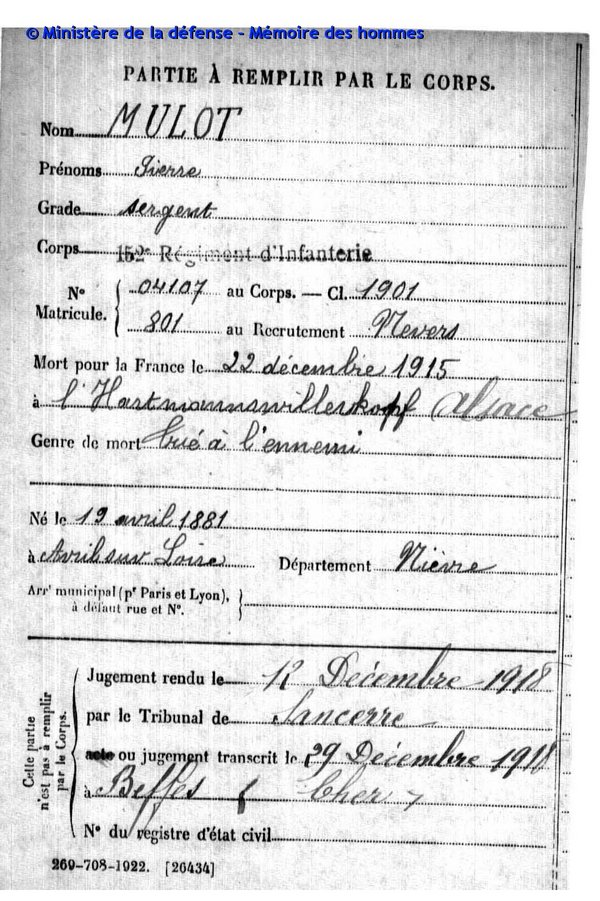 © Ministère de la défense - Mémoire des hommes
PARTIE À REMPLIR PAR LE CORPS.
Nom MULOT
Prénoms Pierre
Grade sergent
Corps 152e Régiment d'Infanterie
N° Matricule. 04107 au Corps. — Cl. 1901
801 au Recrutement Nevers
Mort pour la France le 22 décembre 1915
à l'Hartmannswillerskopf Alsace
Genre de mort tué à l'ennemi
Né le 19 avril 1881
à Avril sur Loire Département Nièvre
Arrt municipal (pr Paris et Lyon),
à défaut rue et N°.
Cette partie
n'est pas à remplir
par le Corps.
Jugement rendu le 12 Décembre 1918
par le Tribunal de Sancerre
acte ou jugement transcrit le 29 Décembre 1918
à Beffes (Cher)
N° du registre d'état civil
269-708-1922. [26434]